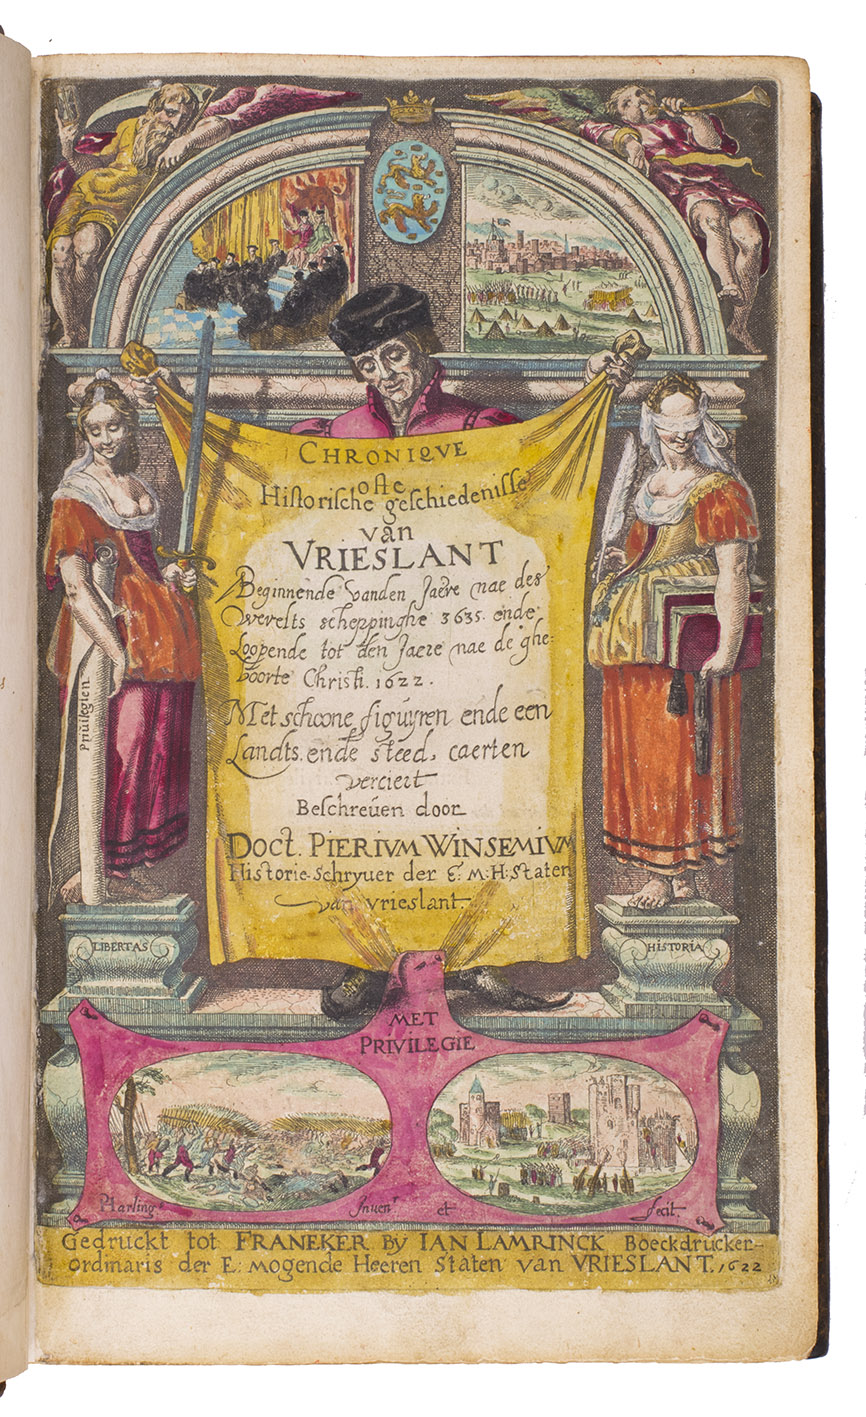 CHRONIQVE
ofte
Historische geschiedenisse
van
VRIESLANT
Beginnende vanden Jaere nae des
werelts scheppinghe 3635. ende
Loopende tot den Jaere nae de ghe-
boorte Christi. 1622.
Met schoone figuyren ende een
Landts. ende steed, caerten
verciert
Beschreuen door
Doct. PIERIVM WINSEMIVM
Historie-schryuer der E: M: H: staten
van vrieslant
Priuilegien
LIBERTAS
HISTORIA
MET
PRIVILEGIE
P Harling. Inuen.t et fecit.
Gedruckt tot FRANEKER By IAN LAMRINCK Boeckdrucker-
ordinaris der E: mogende Heeren staten van VRIESLANT. 1622